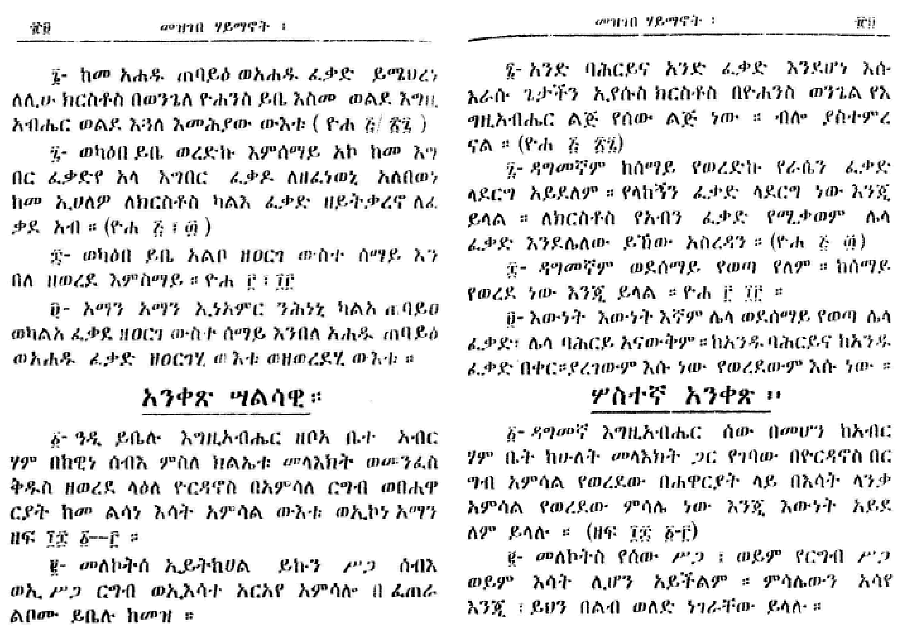 ፳፱ መዝገበ ሃይማኖት ፡
፮- ከመ አሐዱ ጠባይዕ ወአሐዱ ፈቃድ ይሜህረነ
ለሊሁ ክርስቶስ በወንጌለ ዮሐንስ ይቤ እስመ ወልደ እግዚ
አብሔር ወልደ እጓለ እመሕያው ውእቱ ( ዮሐ ፭/ ፳፯ )
፯- ወካዕበ ይቤ ወረድኩ እምሰማይ አኮ ከመ እግ
በር ፈቃድየ አላ እግበር ፈቃዶ ለዘፈነወኒ አለበወነ
ከመ ኢሀለዎ ለክርስቶስ ካልእ ፈቃድ ዘይትቃረኖ ለፈ
ቃደ አብ ። (ዮሐ ፭ ፡ ፴ )
፰- ወካዕበ ይቤ አልቦ ዘዐርገ ውስተ ሰማይ እን
በለ ዘወረደ እምስማይ ። ዮሐ ፫ ፡ ፲፫
፱- አማን አማን ኢነአምር ንሕነኒ ካልአ ጠባይዐ
ወካልአ ፈቃደ ዘዐርገ ውስተ ሰማይ እንበለ አሐዱ ጠባይዕ
ወአሐዱ ፈቃድ ዘዐርገሂ ውእቱ ወዘወረደሂ ውእቱ ።
አንቀጽ ሣልሳዊ ።
፩- ዓዲ ይቤሉ እግዚአብሔር ዘቦአ ቤተ አብር
ሃም በከዊነ ሰብእ ምስለ ክልኤቱ መላእክት ወመንፈስ
ቅዱስ ዘወረደ ላዕለ ዮርዳኖስ በአምሳለ ርግብ ወበሐዋ
ርያት ከመ ልሳነ እሳት አምሳል ውእቱ ወኢኮነ አማን
ዘፍ ፲፰ ፩—፫ ።
፪- መለኮትሰ ኢይትከሀል ይኩን ሥጋ ሰብእ
ወኢ ሥጋ ርግብ ወኢእሳተ አርአየ አምሳሎ በ ፈጠራ
ልቦሙ ይቤሉ ከመዝ ።
መዝገበ ሃይማኖት ፡ ፳፱
፮- አንድ ባሕርይና አንድ ፈቃድ እንደሆነ እሱ
እራሱ ጌታችን ኢየሱስ ክርስቶስ በዮሐንስ ወንጌል የእ
ግዚአብሔር ልጅ የሰው ልጅ ነው ። ብሎ ያስተምረ
ናል ። (ዮሐ ፭ ፳፯)
፯- ዳግመኛም ከሰማይ የወረድኩ የራሴን ፈቃድ
ላደርግ አይደለም ። የላከኝን ፈቃድ ላደርግ ነው እንጂ
ይላል ። ለክርስቶስ የአብን ፈቃድ የሚቃወም ሌላ
ፈቃድ እንደሌለው ይኸው አስረዳን ። (ዮሐ ፭ ፴)
፰- ዳግመኛም ወደሰማይ የወጣ የለም ። ከሰማይ
የወረደ ነው እንጂ ይላል ። ዮሐ ፫ ፲፫ ።
፱- እውነት እውነት እኛም ሌላ ወደሰማይ የወጣ ሌላ
ፈቃድ፡ ሌላ ባሕርይ አናውቅም ። ከአንዱ ባሕርይና ከአንዱ
ፈቃድ በቀር።ያረገውም እሱ ነው ። የወረደውም እሱ ነው ።
ሦስተኛ አንቀጽ ።
፩- ዳግመኛ እግዚአብሔር ሰው በመሆን ከአብር
ሃም ቤት ከሁለት መላእክት ጋር የገባው በዮርዳኖስ በር
ግብ አምሳል የወረደው በሐዋርያት ላይ በእሳት ላንቃ
አምሳል የወረደው ምሳሌ ነው እንጂ እውነት አይደ
ለም ይላሉ ። (ዘፍ ፲፰ ፩-፫)
፪- መለኮትስ የሰው ሥጋ ፤ ወይም የርግብ ሥጋ
ወይም እሳት ሊሆን አይችልም ። ምሳሌውን አሳየ
እንጂ ፡ ይህን በልብ ወለድ ነገራቸው ይላሉ ።